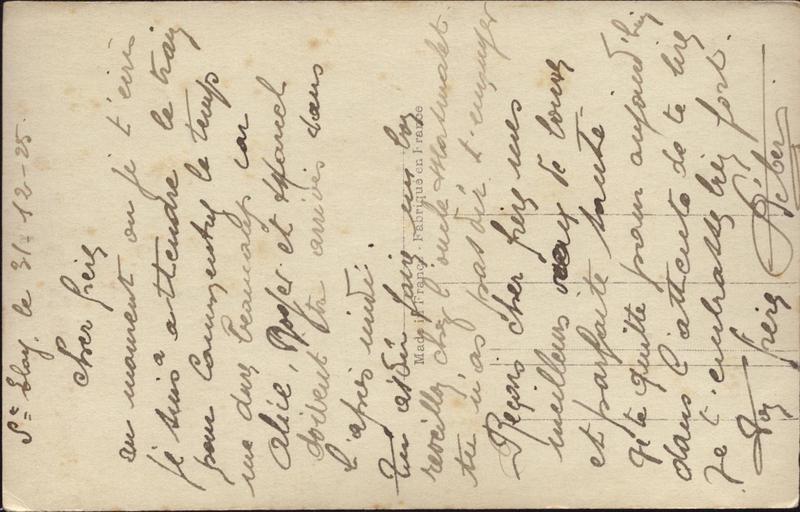 St Eloy, le 31-12-25
Cher frère
au moment ou je t'écris
je suis à attendre le train
pour Commentry le temps
me dure beaucoup car
Alice, Roger et Marcel
doivent être arrivés dans
l'après midi.
Tu as dû faire un bon
réveillon chez l'oncle
tu n'as pas dû t'ennuyer
Reçois cher frère mes
meilleurs vœux de bonne
et parfaite santé.
Je te quitte pour aujourd'hui
dans l'attente de te lire
Je t'embrasse bien fort.
Ton frère
Made in France - Fabriqué en France